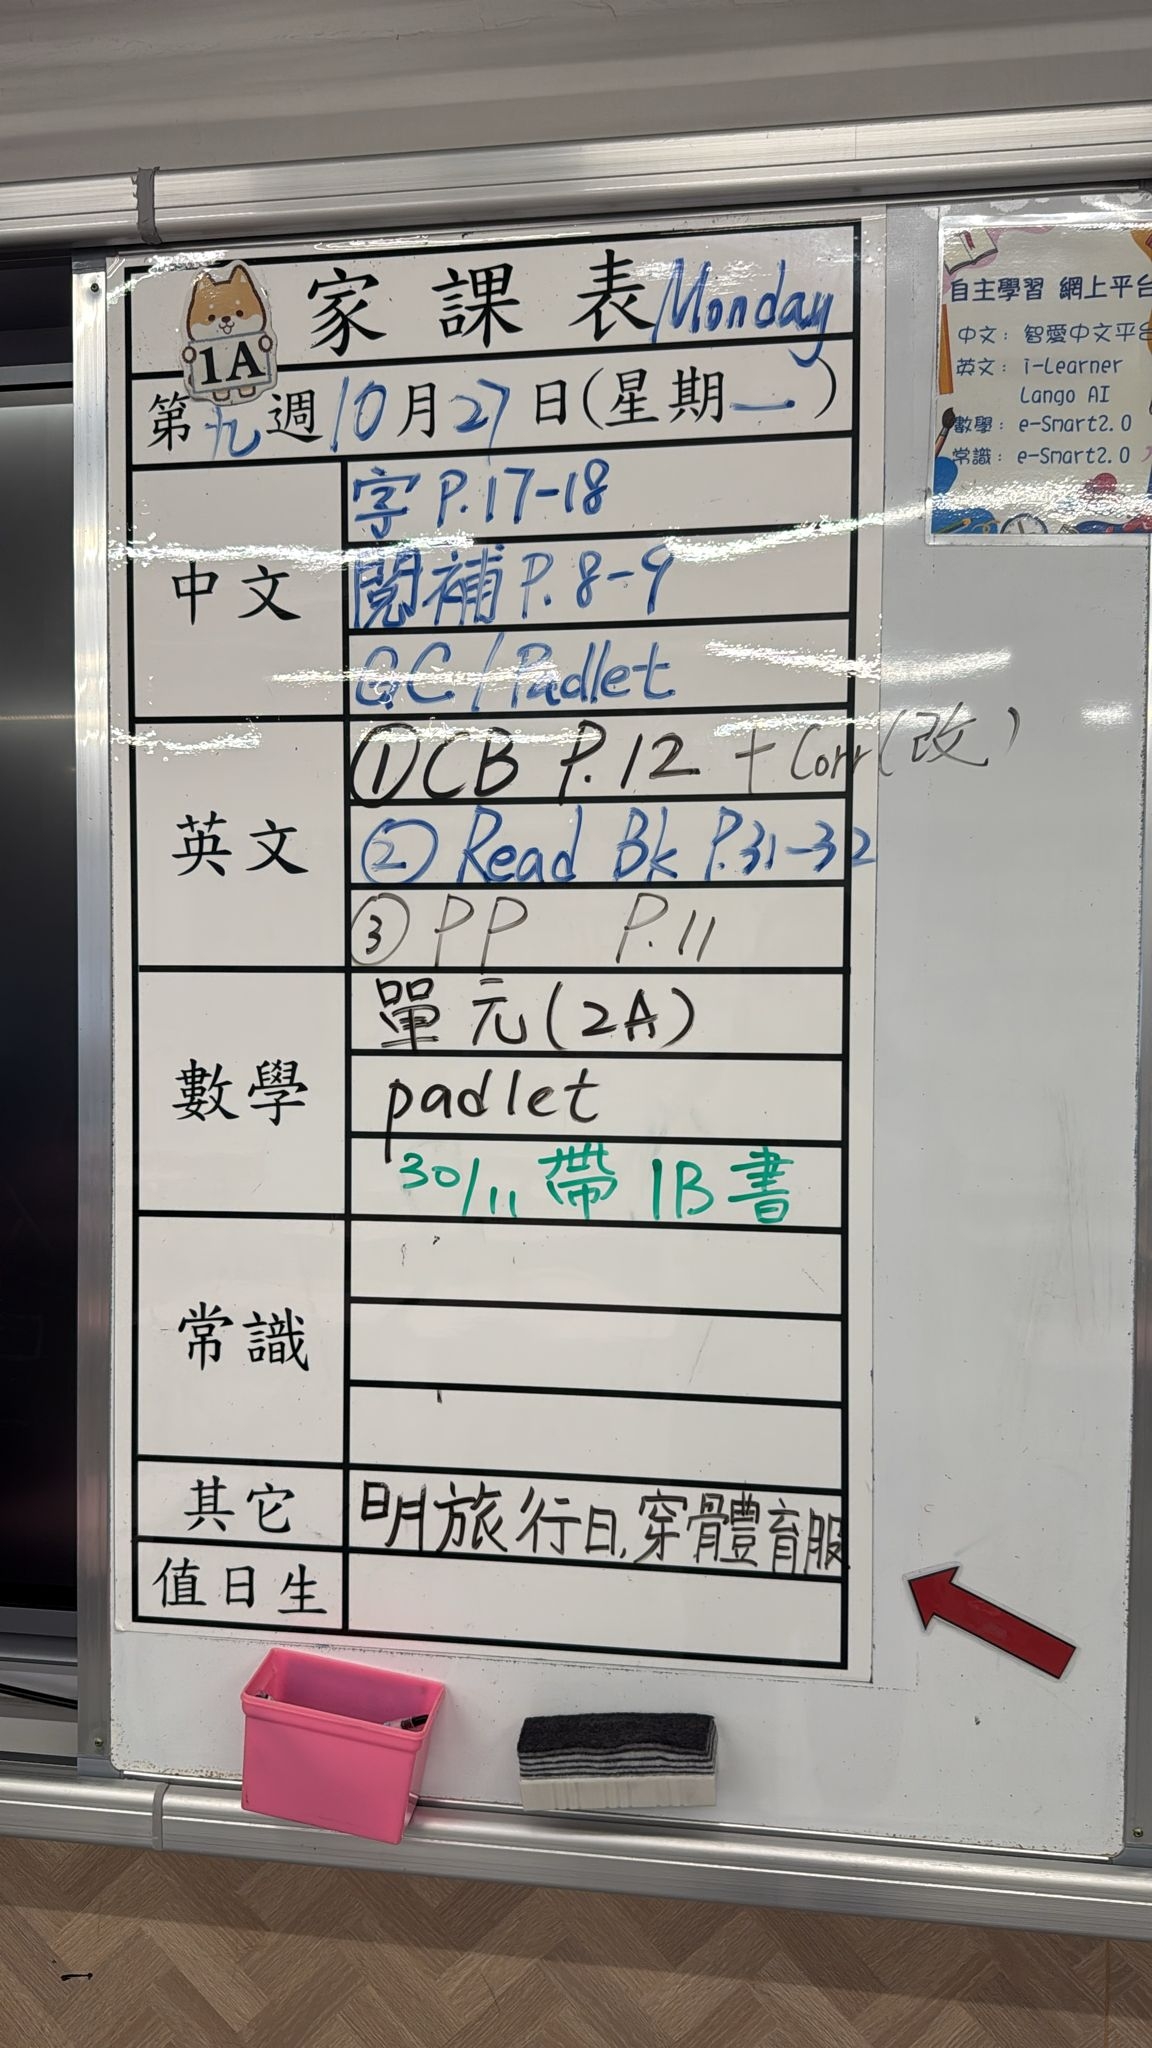 家課表 Monday
1A
第九週10月27日(星期一)
中文
字 P.17-18
閱補 P.8-9
QC/Padlet
英文
①CB P.12 + Corr(改)
② Read Bk P.31-32
③ PP P.11
數學
單元(2A)
padlet
30/11 帶 1B書
常識
其它
明旅行日,穿體育服
值日生
自主學習 網上平台
中文: 智愛中文平台
英文: i-Learner
Lango AI
數學: e-Smart2.0
常識: e-Smart2.0